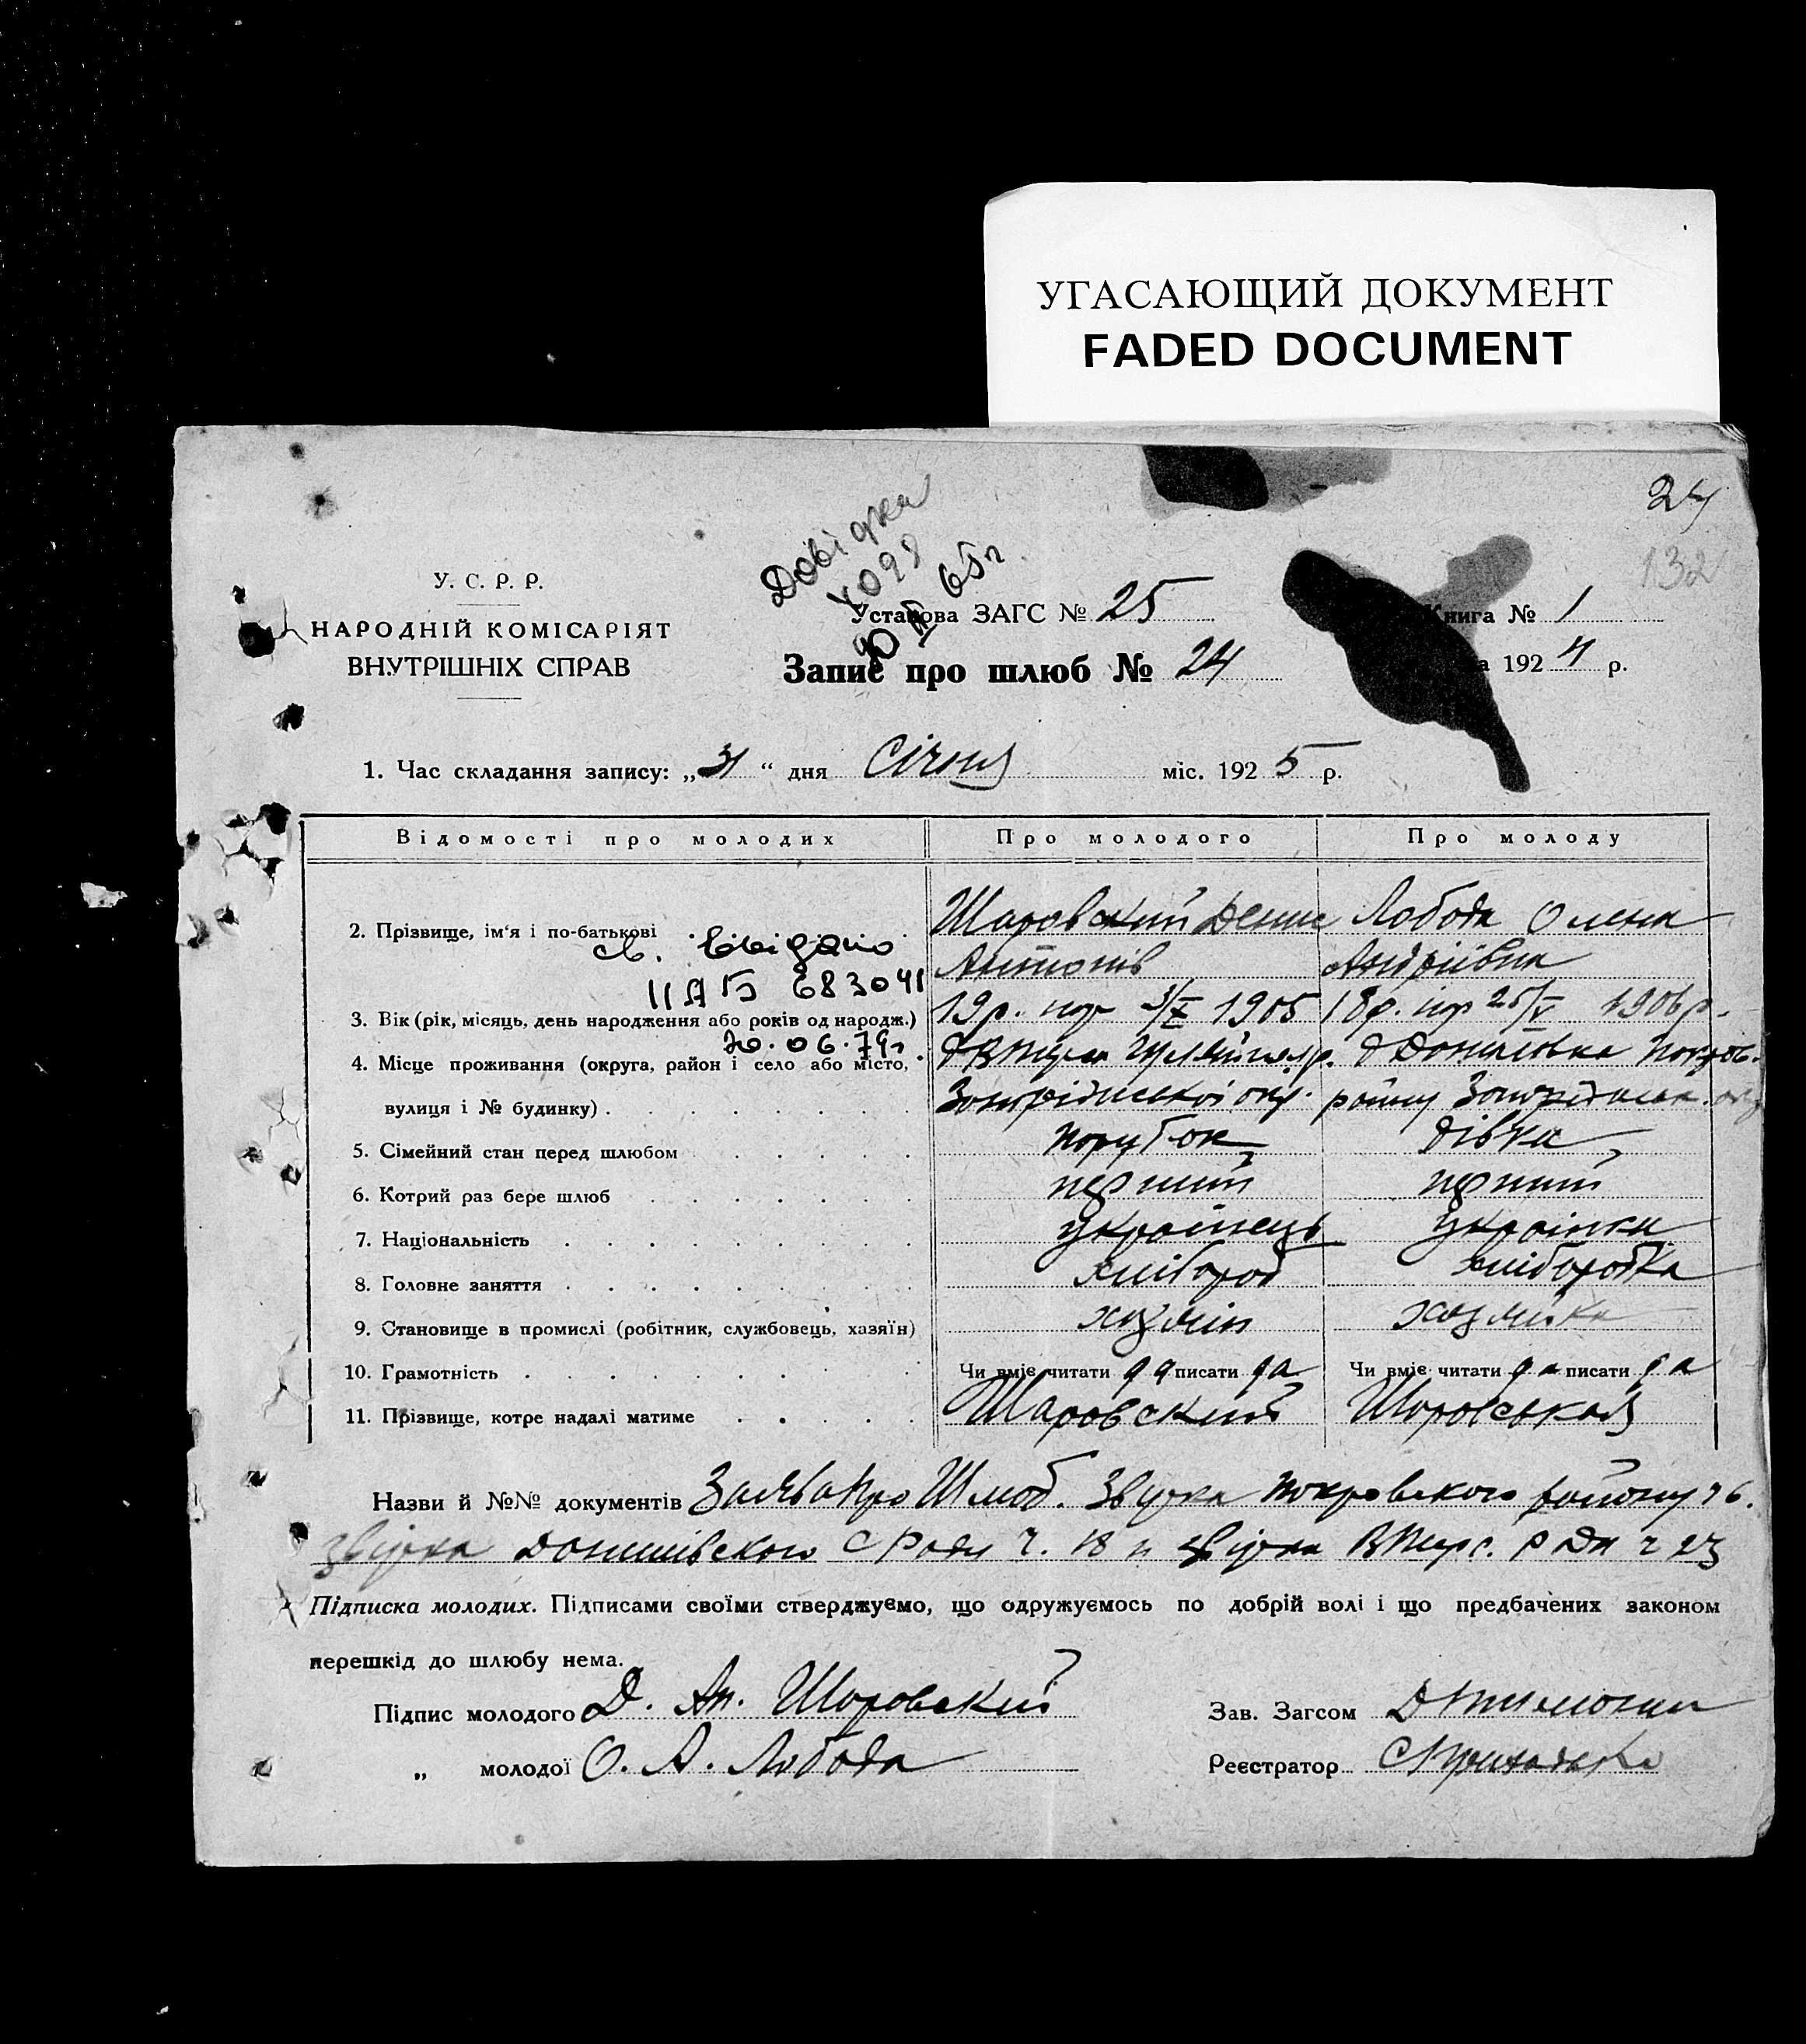 УГАСАЮЩИЙ ДОКУМЕНТ
FADED DOCUMENT
24
132
Довідка
4098
65г.
У. С. Р. Р.
НАРОДНІЙ КОМІСАРІЯТ
ВНУТРІШНІХ СПРАВ
Установа ЗАГС № 25
Книга № 1
Запис про шлюб № 24
а 1924 р.
1. Час складання запису: „31“ дня Січня міс. 1925 р.
Відомості про молодих Про молодого Про молоду
2. Прізвище, ім'я і по-батькові Шаровский Денис Лобода Олена
Антонів Андріївна
св. ІІАБ 683041
3. Вік (рік, місяць, день народження або років од народж.) 19р. 3/X 1905 18р. 25/V 1906р.
20.06.79г.
4. Місце проживання (округа, район і село або місто, Покров.
вулиця і № будинку) Запорідської окр. району Запорідськ. окр
5. Сімейний стан перед шлюбом парубок дівка
6. Котрий раз бере шлюб перший перший
7. Національність українець українка
8. Головне заняття хлібороб хліборобка
9. Становище в промислі (робітник, службовець, хазяїн) хозяїн хозяйка
10. Грамотність Чи вміє читати да писати да Чи вміє читати да писати да
11. Прізвище, котре надалі матиме Шаровский Шаровськая
Назви й №№ документів Заява про Шлюб. Звідка Покровского району 76.
звідка С Ради Ч. 18 и звідка ч 23
Підписка молодих. Підписами своїми стверджуємо, що одружуємось по добрій волі і що предбачених законом
перешкід до шлюбу нема.
Підпис молодого Д. Ан. Шаровский Зав. Загсом
„ молодої О. А. Лобода Реєстратор